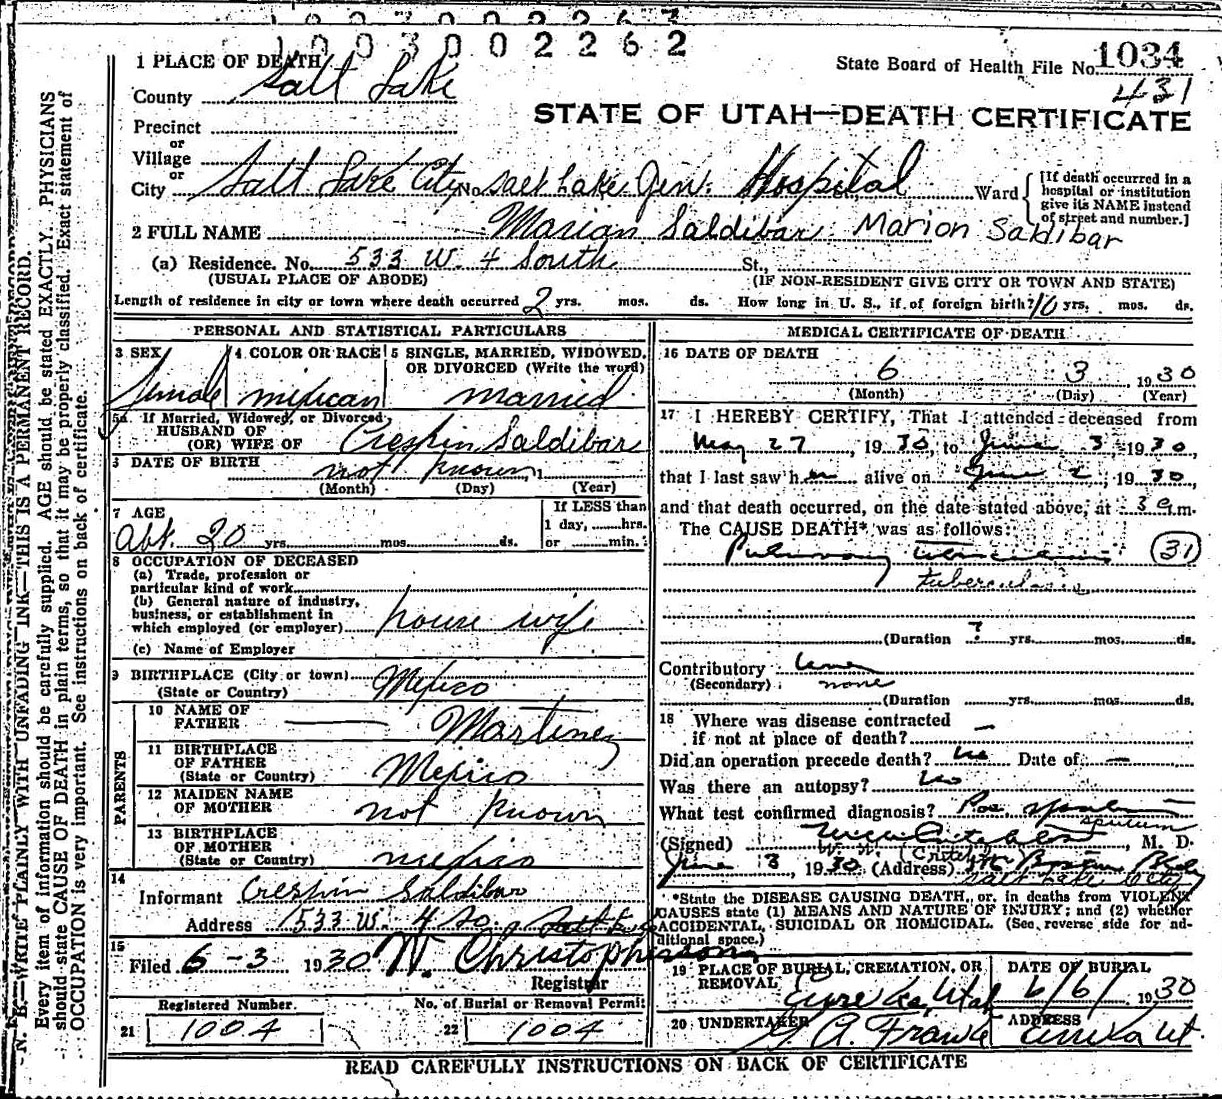 1003002263
1003002262
1 PLACE OF DEATH
State Board of Health File No. 1034
431
County Salt Lake
STATE OF UTAH—DEATH CERTIFICATE
Precinct
or
Village
or
City Salt Lake City No. Salt Lake Gen. Hospital St., Ward
[If death occurred in a hospital or institution give its NAME instead of street and number.]
2 FULL NAME Marian Saldibar Marion Saldibar
(a) Residence. No. 533 W. 4 South St.,
(USUAL PLACE OF ABODE) (IF NON-RESIDENT GIVE CITY OR TOWN AND STATE)
Length of residence in city or town where death occurred 2 yrs. mos. ds. How long in U. S., if of foreign birth? 10 yrs. mos. ds.
PERSONAL AND STATISTICAL PARTICULARS
3 SEX 4 COLOR OR RACE 5 SINGLE, MARRIED, WIDOWED, OR DIVORCED (Write the word)
female mexican married
5a If Married, Widowed, or Divorced
HUSBAND OF
(OR) WIFE OF Crespin Saldibar
6 DATE OF BIRTH not known
(Month) (Day) (Year)
7 AGE If LESS than
1 day, hrs.
Abt. 20 yrs. mos. ds. or min.
8 OCCUPATION OF DECEASED
(a) Trade, profession or
particular kind of work
(b) General nature of industry,
business, or establishment in
which employed (or employer) house wife
(c) Name of Employer
9 BIRTHPLACE (City or town)
(State or Country) Mexico
PARENTS
10 NAME OF
FATHER — Martinez
11 BIRTHPLACE
OF FATHER
(State or Country) Mexico
12 MAIDEN NAME
OF MOTHER not known
13 BIRTHPLACE
OF MOTHER
(State or Country) mexico
14
Informant Crespin Saldibar
Address 533 W. 4 So. Salt Lake
15
Filed 6-3 1930 W. Christopherson
Registrar
Registered Number. No. of Burial or Removal Permit
21 1004 22 1004
MEDICAL CERTIFICATE OF DEATH
16 DATE OF DEATH
6 3, 1930
(Month) (Day) (Year)
17 I HEREBY CERTIFY, That I attended deceased from
May 27, 1930, to June 3, 1930
that I last saw her alive on June 2, 1930
and that death occurred, on the date stated above, at 3 a.m.
The CAUSE DEATH* was as follows:
Pulmonary Tuberculosis (31)
Tuberculosis
(Duration ? yrs. mos. ds.
Contributory none
(Secondary) none
(Duration yrs. mos. ds.
18 Where was disease contracted
if not at place of death? —
Did an operation precede death? no Date of —
Was there an autopsy? no
What test confirmed diagnosis? Pos. sputum
sputum
(Signed) M. D.
June 3, 1930 (Address) Boston Bldg
Salt Lake City
*State the DISEASE CAUSING DEATH, or, in deaths from VIOLENT
CAUSES state (1) MEANS AND NATURE OF INJURY; and (2) whether
ACCIDENTAL, SUICIDAL OR HOMICIDAL. (See reverse side for ad-
ditional space.)
19 PLACE OF BURIAL, CREMATION, OR REMOVAL DATE OF BURIAL
Eureka, Utah 6/6/ 1930
20 UNDERTAKER ADDRESS
A. Franke Eureka Ut.
READ CAREFULLY INSTRUCTIONS ON BACK OF CERTIFICATE
N. B.—WRITE PLAINLY WITH UNFADING INK—THIS IS A PERMANENT RECORD.
Every item of information should be carefully supplied. AGE should be stated EXACTLY. PHYSICIANS
should state CAUSE OF DEATH in plain terms, so that it may be properly classified. Exact statement of
OCCUPATION is very important. See instructions on back of certificate.